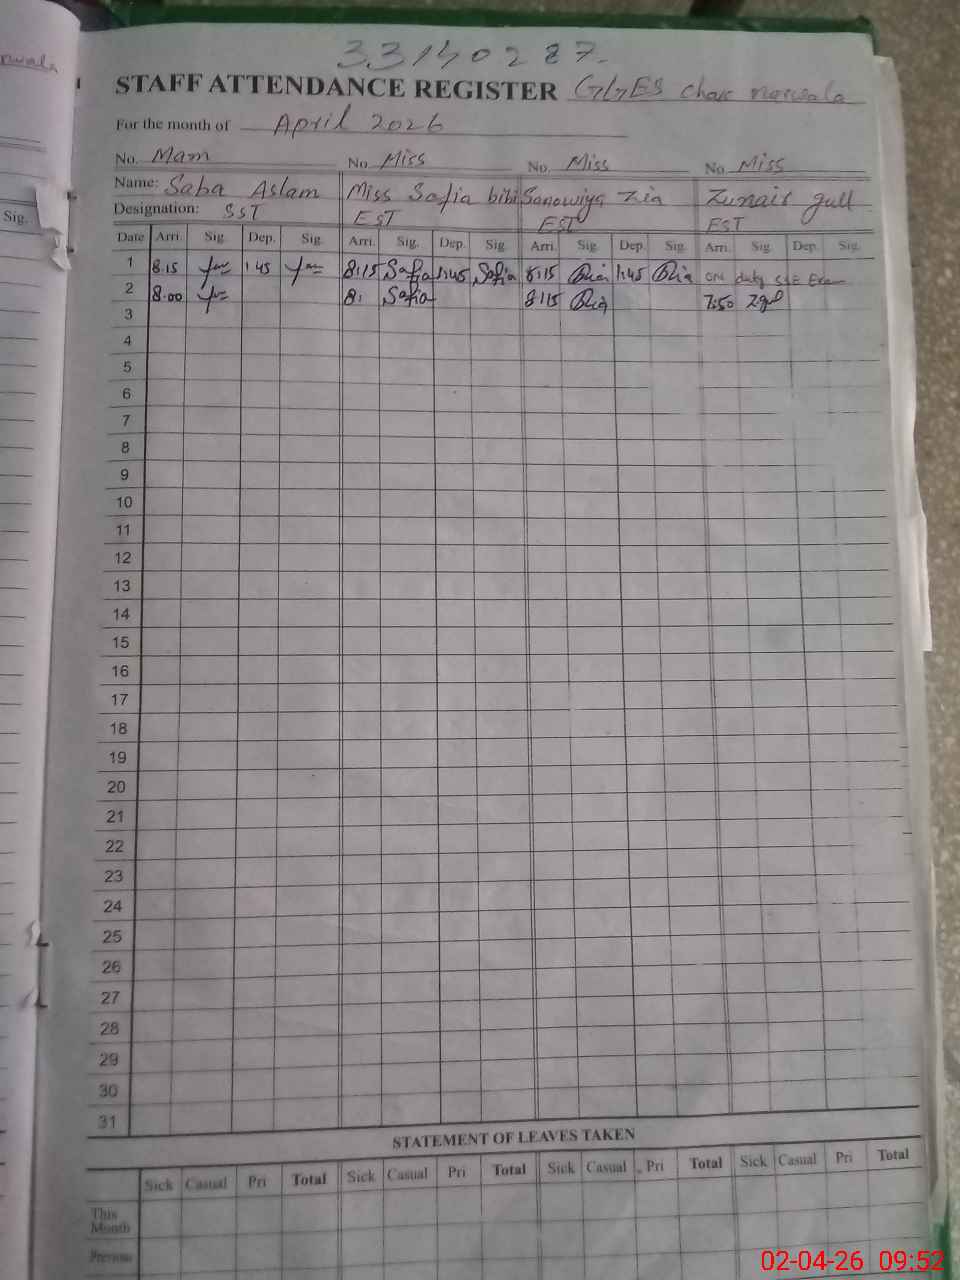 33140287.
STAFF ATTENDANCE REGISTER GGES Chak
For the month of April 2026
No. Mam No. Miss No. Miss No. Miss
Name: Saba Aslam Miss Safia bibi Sanowiya Zia Zunair gull
Designation: SST EST EST EST
Date Arri. Sig. Dep. Sig. Arri. Sig. Dep. Sig. Arri. Sig. Dep. Sig. Arri. Sig. Dep. Sig.
1 8.15 1:45 8:15 Safia 1:45 Safia 8:15 1:45 on duty Exam
2 8.00 8: Safia 8:15 7:50 Zgul
3
4
5
6
7
8
9
10
11
12
13
14
15
16
17
18
19
20
21
22
23
24
25
26
27
28
29
30
31
STATEMENT OF LEAVES TAKEN
Sick Casual Pri Total Sick Casual Pri Total Sick Casual Pri Total Sick Casual Pri Total
This
Month
Previous
Sig.
02-04-26 09:52